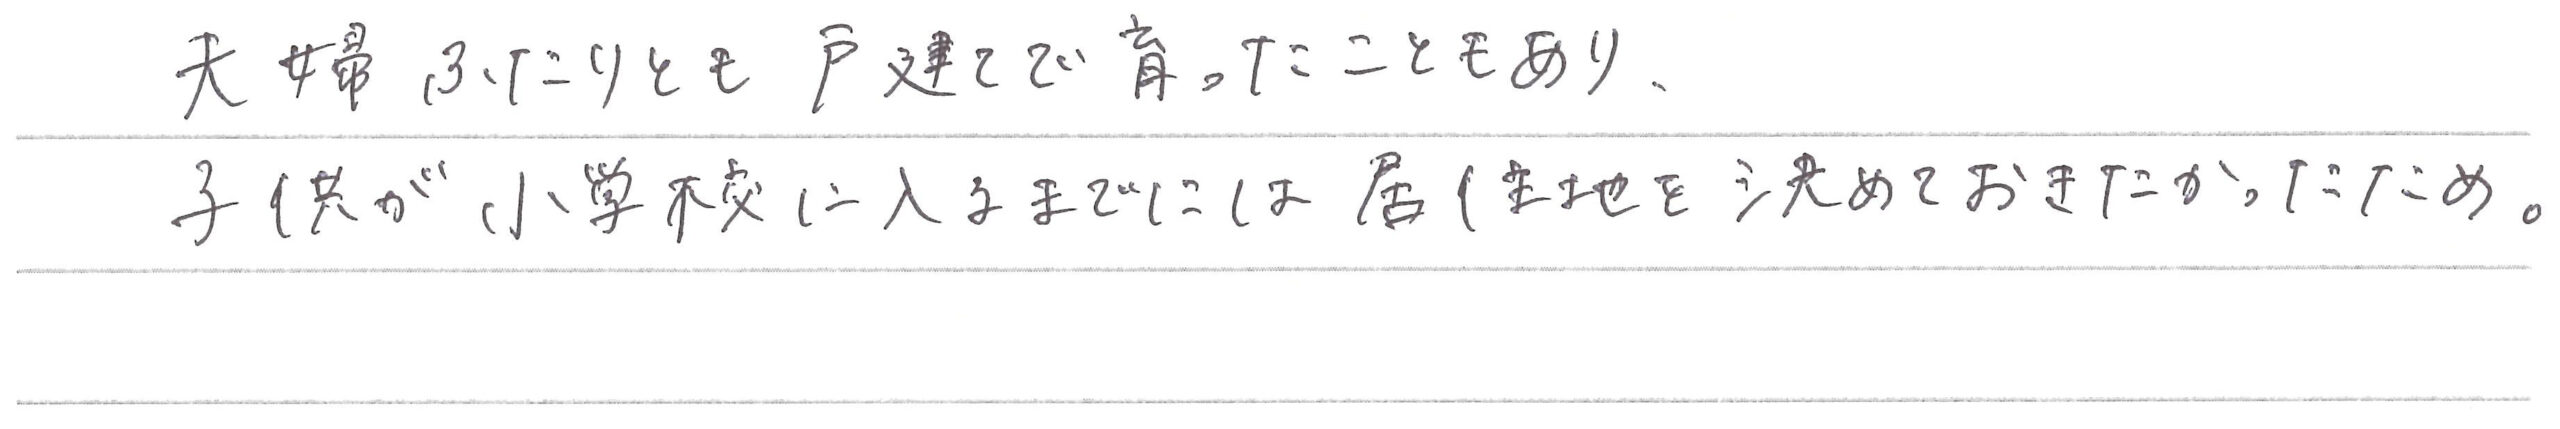 夫婦ふたりとも戸建てで育ったこともあり、
子供が小学校に入るまでには居住地を決めておきたかったため。